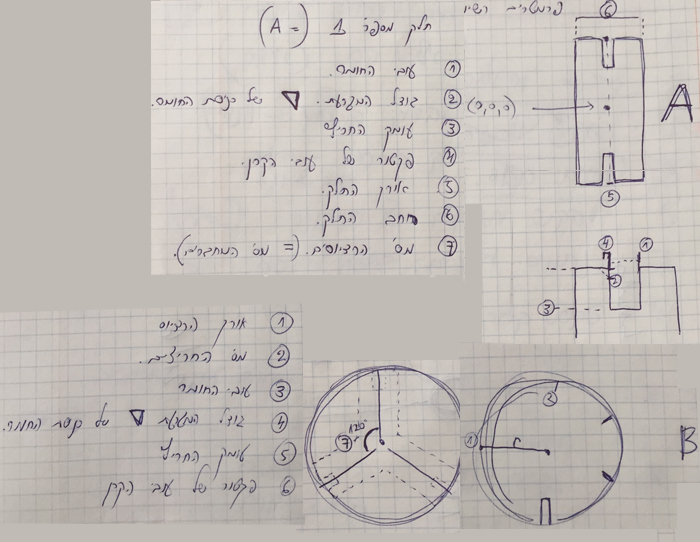 פרמטרים
חלק מספר 1 (= A)
① עובי החומר.
② גודל המגרעת. ▽ של כניסת החומר.
③ עומק החריץ
④ פקטור של עובי הקרן.
⑤ אורך החלק.
⑥ רוחב החלק.
⑦ מס' הרדיוסים. (= מס' המחברים).
⑥
(0,0,0)
A
⑤
④ ①
②
③
① אורך הרדיוס
② מס' החריצים.
③ עובי החומר
④ גודל המגרעת ▽ של כניסת החומר.
⑤ עומק החריץ
⑥ פקטור של עובי הקרן
⑦ 120°
②
① r
B